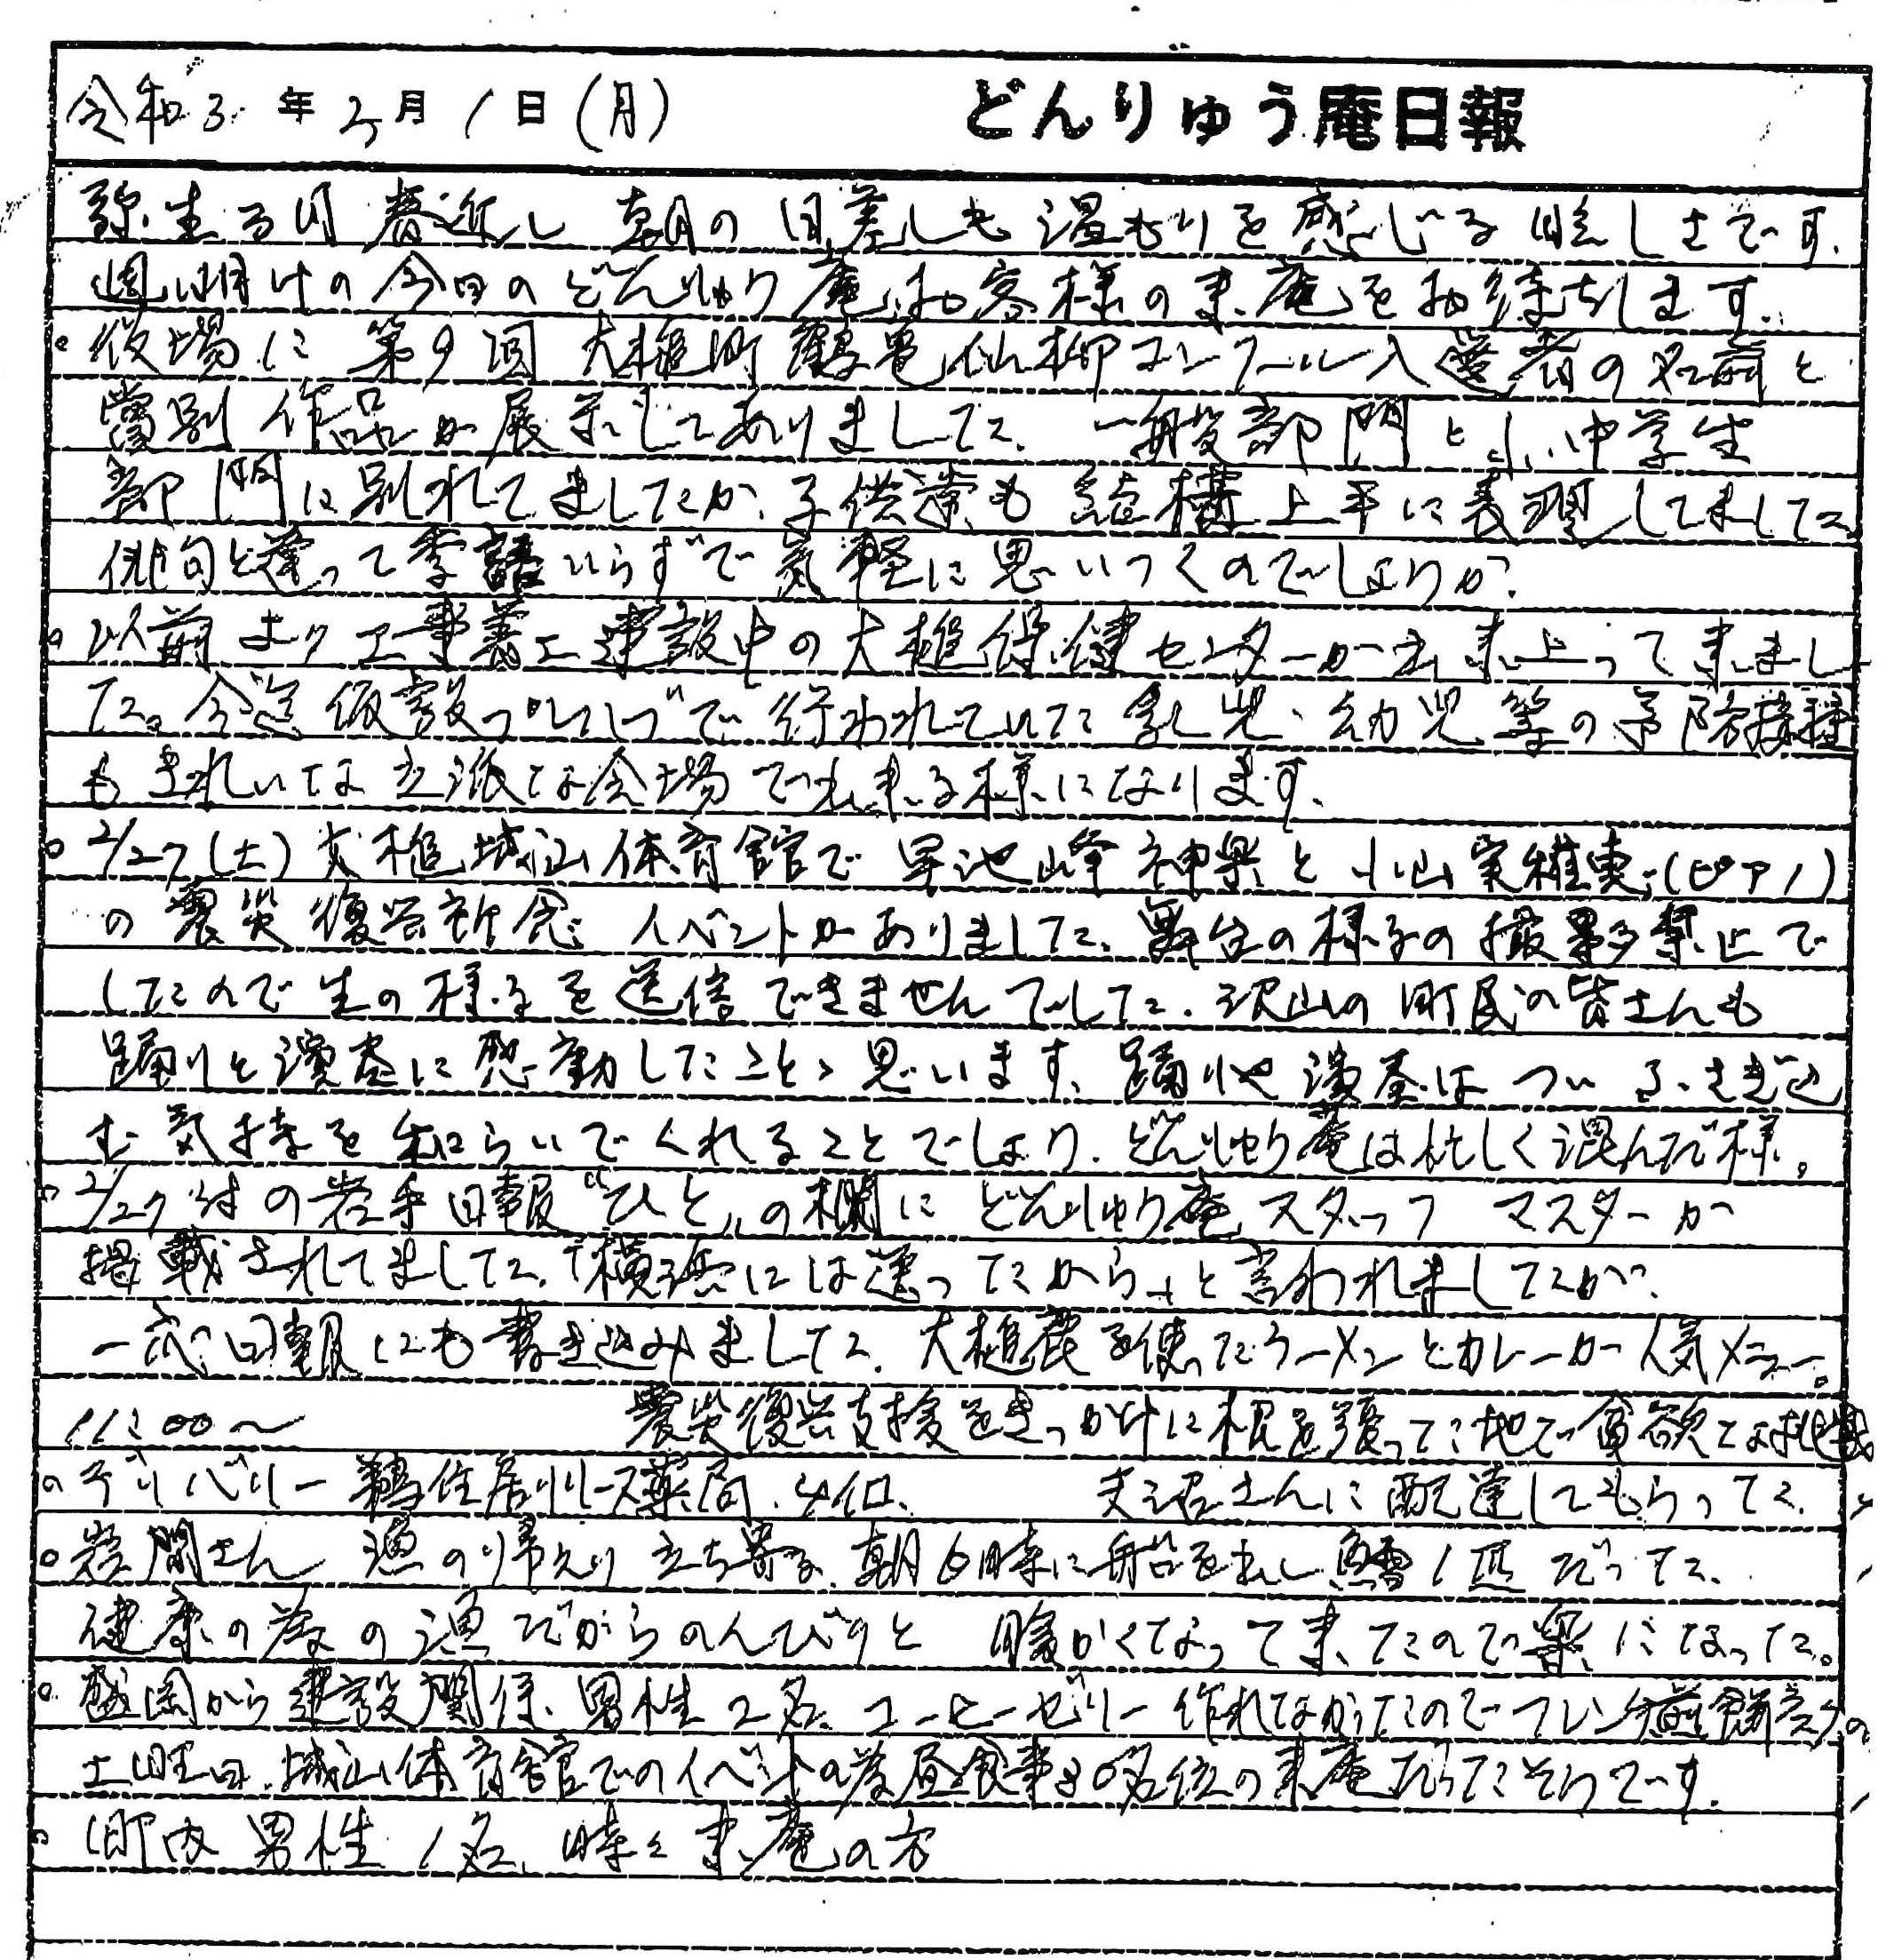 令和3年3月1日(月) どんりゅう庵日報
弥生3月 春近し 朝の日差しも温もりを感じる眩しさです。
週明けの今日のどんりゅう庵、お客様の来庵をお待ちします。
○役場に第9回大槌町鶴亀仙柳コンクール入選者の名前と
賞別作品が展示してありました。一般部門と小、中学生
部門に別れてましたが、子供達も結構上手に表現してました
俳句と違って季語いらずで気軽に思いつくのでしょうか?
○以前より工事着工建設中の大槌保健センターが出来上って来まし
た。今迄仮設づくしで行われていた乳児、幼児等の予防接種
もきれいな立派な会場で出来る様になります。
○2/27(土)大槌城山体育館で早池峰神楽と小山実稚恵(ピアノ)
の震災復興祈念イベントがありました。舞台の様子の撮影禁止で
したので生の様子を送信できませんでした。沢山の町民の皆さんも
踊りと演奏に感動したことゝ思います。踊りや演奏はついふさぎ込
む気持を和らいでくれることでしょう。どんりゅう庵は忙しく混んだ様。
○2/27付の岩手日報“ひと„の欄にどんりゅう庵スタッフ マスターが
掲載されてました。「横浜には送ったから」と言われましたが、
一応日報にも書き込みました。大槌鹿を使ったラーメンとカレーが人気メニュー。
11:00〜 震災復興支援をきっかけに根を張った地で貪欲な挑戦
○デリバリー 鵜住居リリース薬局、4ケ口、 夫沼さんに配達してもらった。
○岩間さん 漁の帰えり立ち寄る。朝6時に船を出し鱈1匹だった。
健康の為の漁だからのんびりと 暖かくなって来たので楽になった。
○盛岡から建設関係、男性2名、コーヒーゼリー作れてなかったのでフレンチ
土曜日、城山体育館でのイベントの為昼食事30名位の来庵だったそうです。
○町内男性1名、時々来庵の方